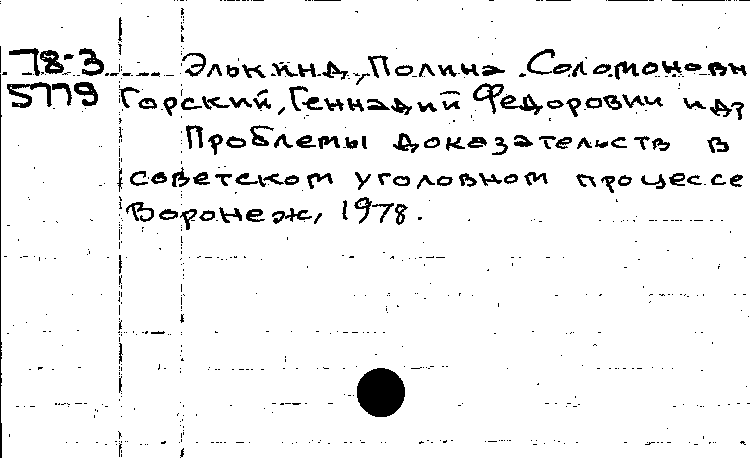 78-3 Элькинд, Полина Соломоновн
5779 Горский, Геннадий Федорович и др
Проблемы доказательств в
советском уголовном процессе
Воронеж, 1978.